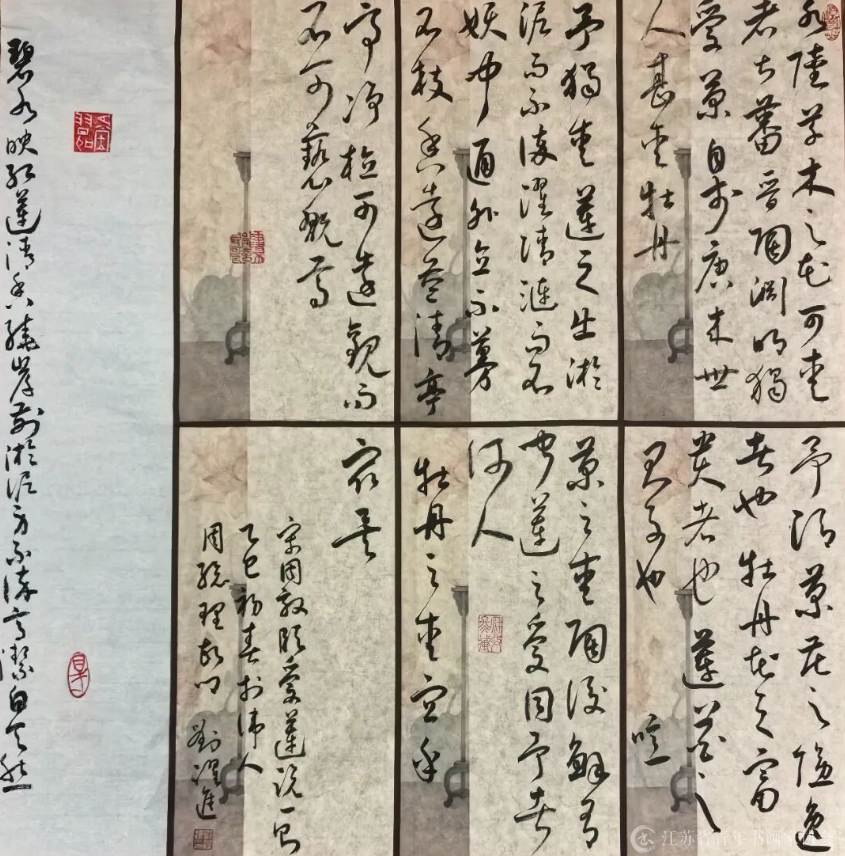 水陸草木之花可愛
者甚蕃晉陶淵明獨
愛菊自李唐来世
人甚愛牡丹
予獨愛蓮之出淤
泥而不染濯清漣而不
妖中通外直不蔓
不枝香遠益清亭
亭净植可遠觀而
不可褻玩焉
予謂菊花之隐逸
者也牡丹花之富
貴者也蓮花之
君子也 噫
菊之愛陶後鮮有
聞蓮之愛同予者
何人
牡丹之愛宜乎
衆矣
宋周敦頤愛蓮說一首
乙巳初春於偉人
周總理故
碧水映紅蓮清香繞岸前淤泥方不染高潔自天然
江苏省青年书画